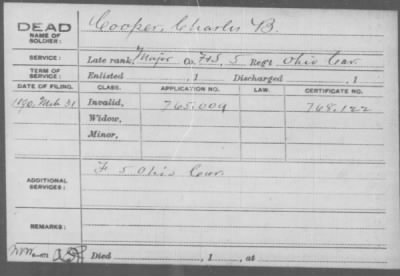 DEAD Cooper, Charles B.
NAME OF
SOLDIER:
SERVICE: Late rank, Major Co. F&S, 5 Reg't Ohio Cav.
TERM OF
SERVICE: Enlisted , 1 Discharged , 1
DATE OF FILING. CLASS. APPLICATION NO. LAW. CERTIFICATE NO.
1890, Mch 31 Invalid, 765.009 768.122
Widow,
Minor,
ADDITIONAL
SERVICES: F 5 Ohio Cav.
REMARKS:
Died , 1 , at